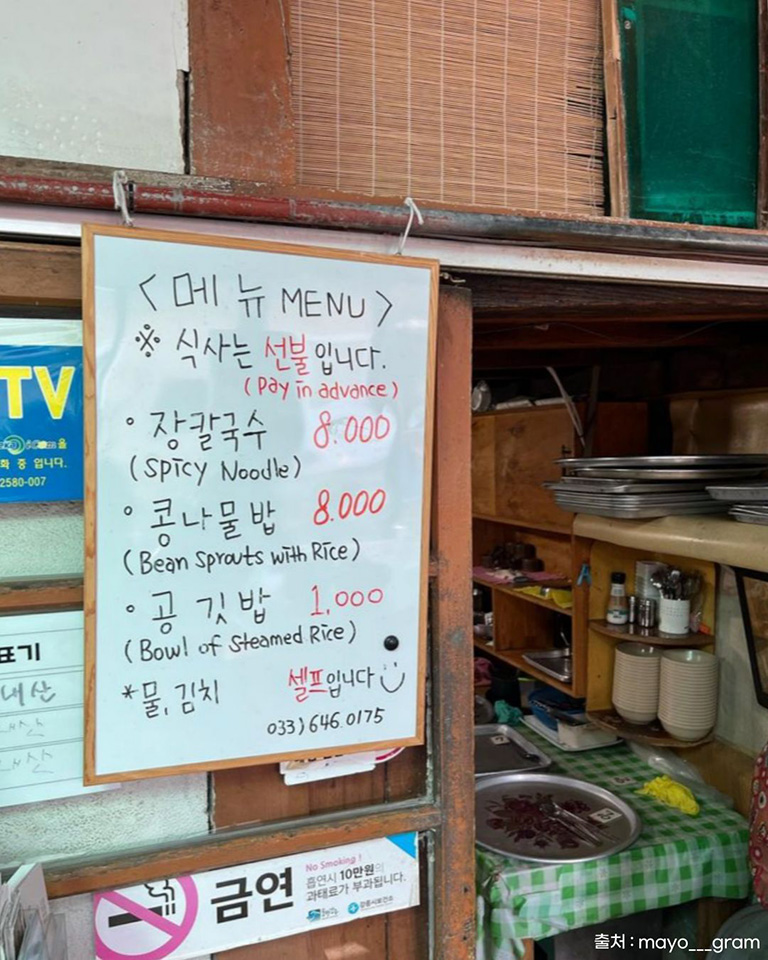 <메뉴 MENU>
※ 식사는 선불입니다.
(Pay in advance)
° 장칼국수 8.000
(Spicy Noodle)
° 콩나물밥 8.000
(Bean Sprouts with Rice)
° 공깃밥 1,000
(Bowl of Steamed Rice)
*물, 김치 셀프입니다
033) 646.0175
TV
화 중 입니다.
2580-007
표기
내산
금연
No Smoking!
흡연시 10만원의
과태료가 부과됩니다.
강릉시보건소
출처 : mayo___gram